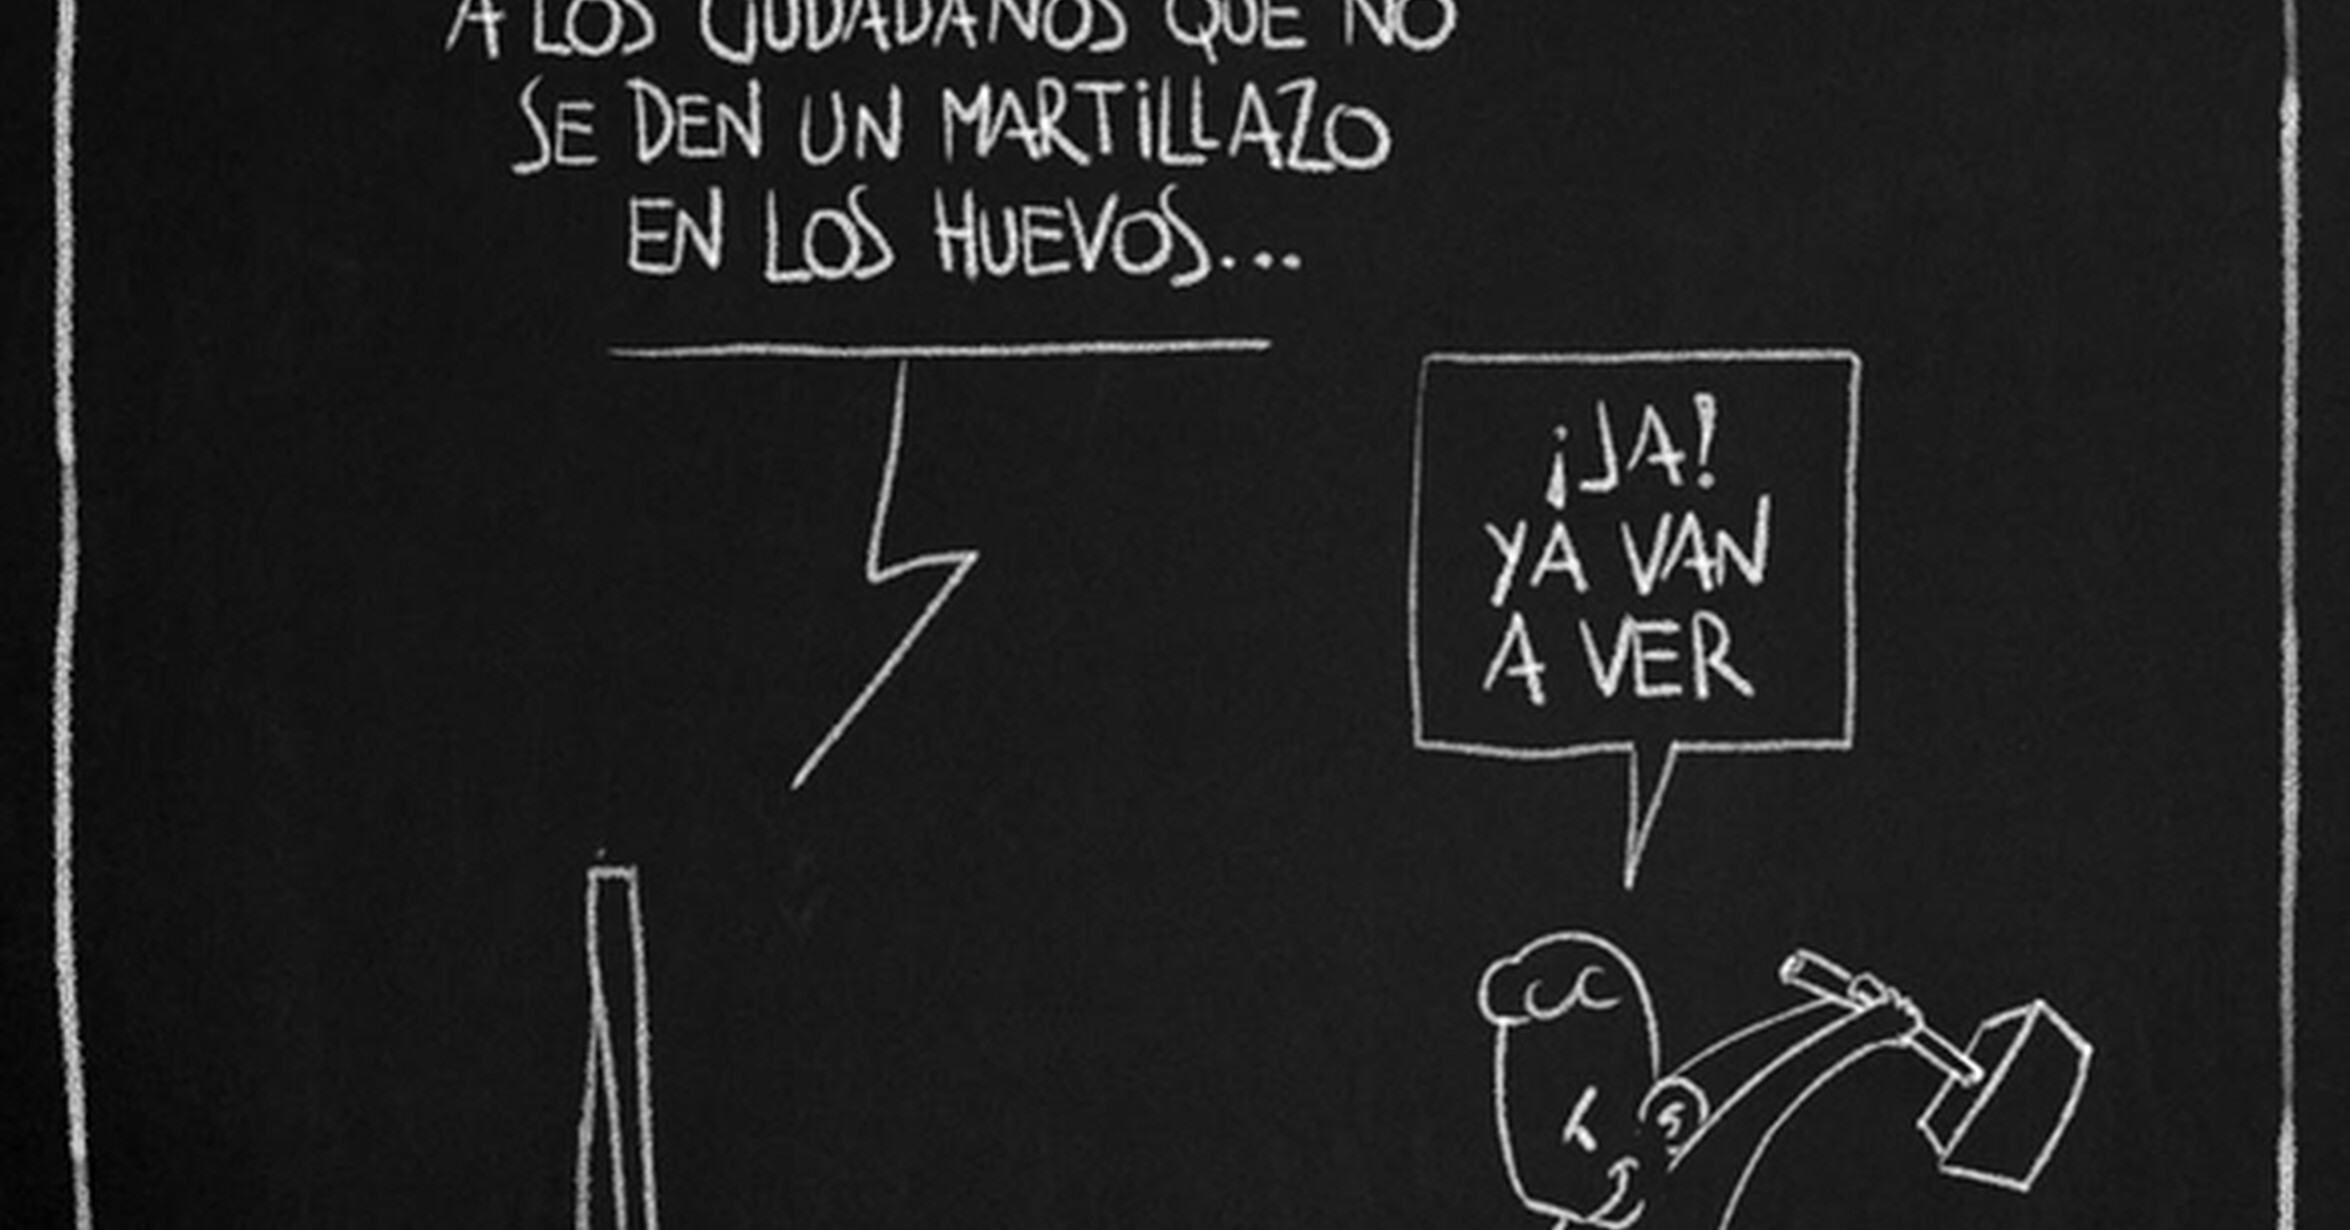 A LOS CIUDADANOS QUE NO
SE DEN UN MARTILLAZO
EN LOS HUEVOS...
¡JA!
YA VAN
A VER